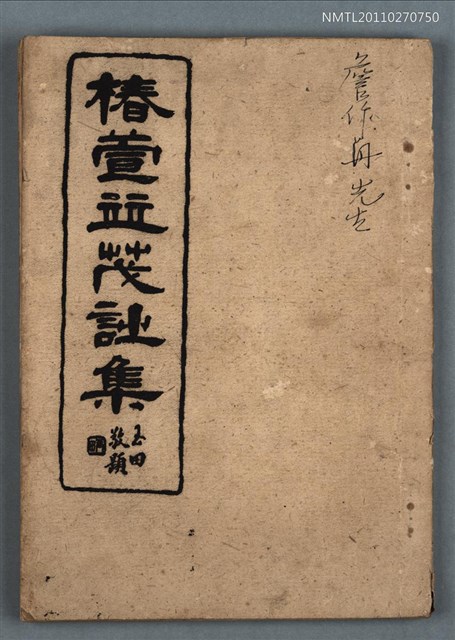 NMTL20110270750
詹作舟先生
椿萱並茂詩集
玉田
敬題